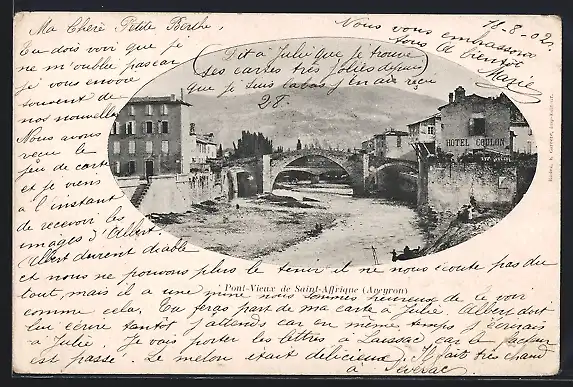 Ma Chère Petite Berthe,
Tu dois voir que je
ne m'oublie pas car
je vous envoie
souvent de
nos nouvelles
Nous avons
reçu le
jeu de carte
et je viens
à l'instant
de recevoir les
images d'Albert.
Albert devient diable
et nous ne pouvons plus le tenir il ne nous écoute pas du
tout, mais il a une mine nous sommes heureuse de le voir
comme cela. Tu feras part de ma carte à Julie, Albert doit
leur écrire tantôt j'attends car en même temps j'écrirais
à Julie. Je vais porter les lettres à Laussac, car le facteur
est passé. Le melon était délicieux. Il fait très chaud
à Séverac.
Dit à Julie que je trouve
ses cartes très jolies depuis
que je suis là-bas j'en ai reçu
28.
11-8-02.
Nous vous embrassons
tous. A bientôt
Marie
HOTEL COULON
Pont-Vieux de Saint-Affrique (Aveyron)